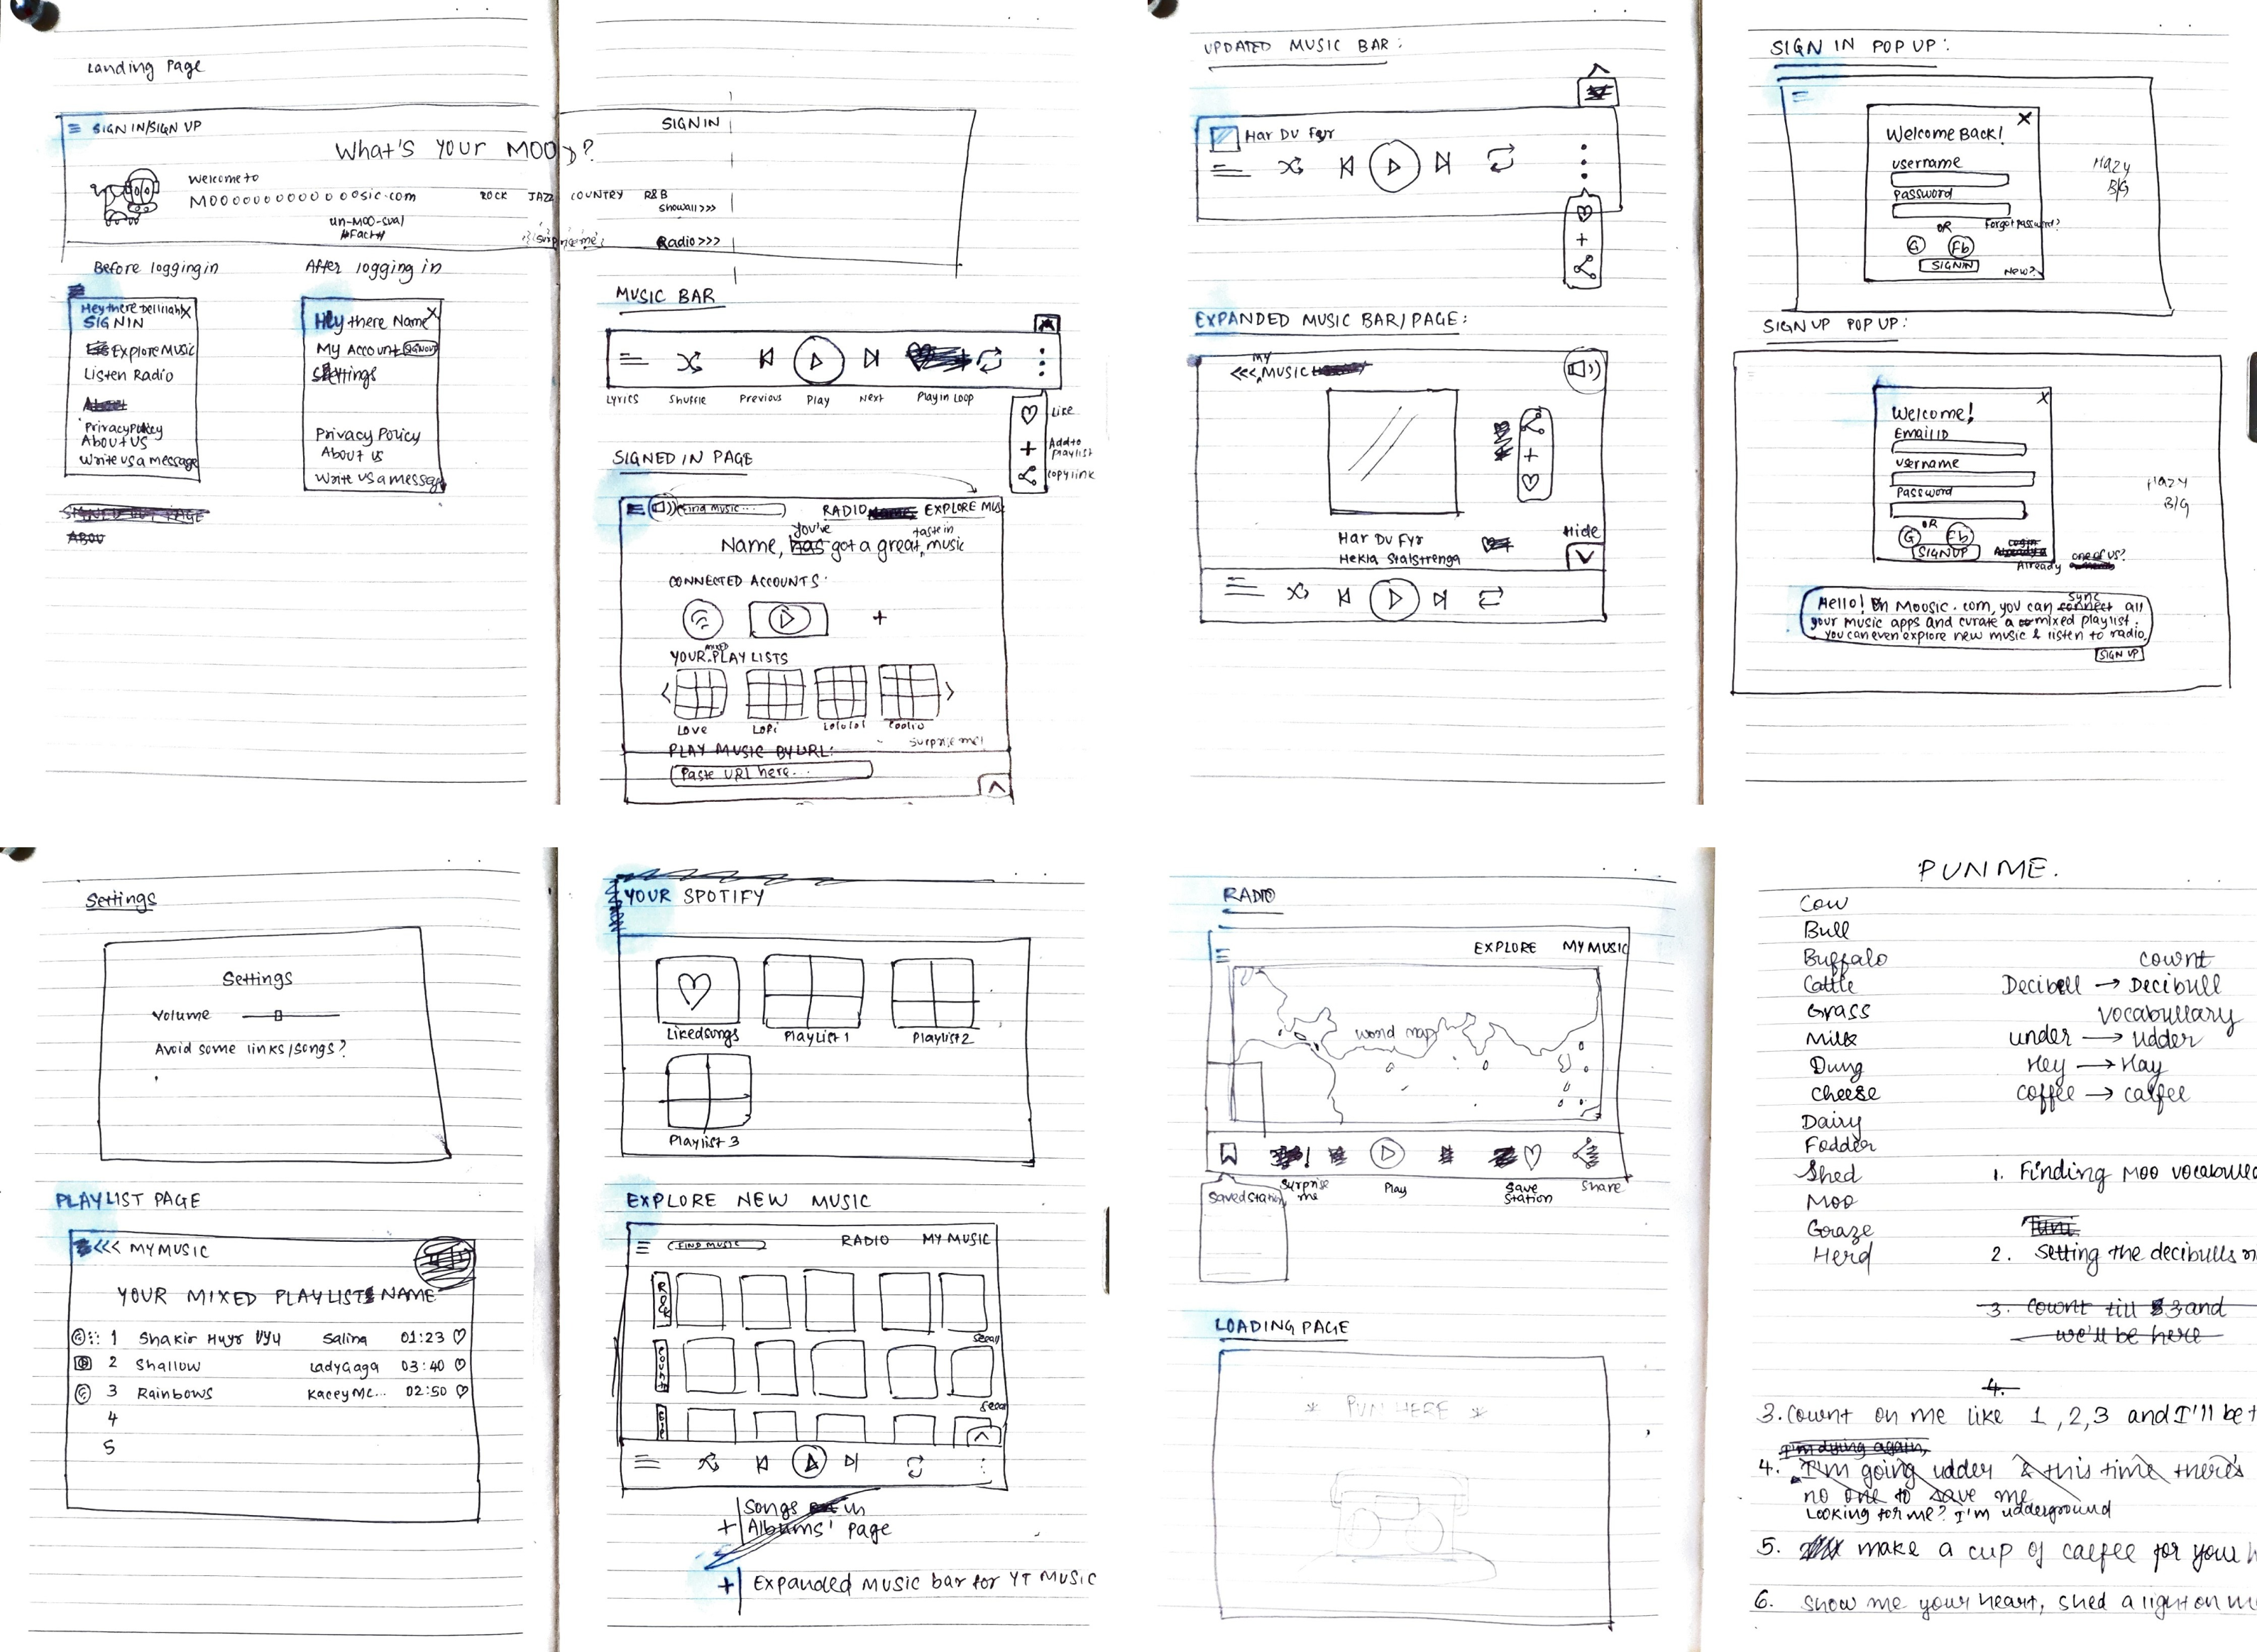 Landing Page
SIGN IN/SIGN UP
SIGN IN
What's YOUR MOOD?
Welcome to
MOOOOOOOOOOOOosic.com
ROCK JAZZ COUNTRY R&B
Show all >>>
un-MOO-sual
#Fact#
surprise me!
Radio >>>
Before logging in
After logging in
SIGN IN
EXPLORE MUSIC
Listen Radio
Privacy Policy
About US
Write us a message
Hey there Name X
My Account SIGNOUT
Settings
Privacy Policy
About us
Write us a message
MUSIC BAR
Lyrics Shuffle Previous Play Next Play in Loop
Like
Add to
playlist
copy link
SIGNED IN PAGE
Find music...
RADIO EXPLORE MUS
you've taste in
Name, has got a great music
CONNECTED ACCOUNTS:
+
MIXED
YOUR PLAY LISTS
LOVE LOFI Lololol Coolio
Surprise me!
PLAY MUSIC BY URL:
Paste URL here...
UPDATED MUSIC BAR:
Har Du Fyr
+
EXPANDED MUSIC BAR/PAGE:
MY
<<< MUSIC
+
Har Du Fyr
Hekla Stalstrenga
Hide
SIGN IN POP UP:
X
Welcome Back!
username
Password
Forgot password?
OR
G Fb
SIGNIN
New?
HAZY
B/G
SIGN UP POP UP:
X
Welcome!
Email ID
username
Password
OR
G Fb
SIGNUP
Already one of us?
HAZY
B/G
sync
Hello! On Moosic.com, you can connect all
your music apps and curate a mixed playlist.
you can even explore new music & listen to radio.
SIGN UP
Settings
Settings
Volume
Avoid some links/songs?
PLAYLIST PAGE
<<< MY MUSIC
YOUR MIXED PLAYLIST NAME
1 Shakir Huyr Vyu Salina 01:23
2 Shallow Lady Gaga 03:40
3 Rainbows Kacey MC... 02:50
4
5
YOUR SPOTIFY
Liked songs Playlist 1 Playlist 2
Playlist 3
EXPLORE NEW MUSIC
FIND MUSIC
RADIO MY MUSIC
ROCK
See all
See all
+ Songs in
Albums' page
+ Expanded music bar for YT MUSIC
RADIO
EXPLORE MY MUSIC
World map
Saved Station
Surprise
me
Play
Save
Station
Share
LOADING PAGE
* PUN HERE *
PUN ME.
Cow
Bull
Buffalo
Cattle
Grass
Milk
Dung
Cheese
Dairy
Fodder
Shed
Moo
Graze
Herd
cownt
Decibell → Decibull
vocabullary
under → udder
Hey → Hay
coffee → calfee
1. Finding Moo vocabulla
2. Setting the decibulls
3. Cownt till 3 and
we'll be here
4.
3. Cownt on me like 1, 2, 3 and I'll be t
I'm dying again,
4. I'm going udder & this time there's
no one to save me
Looking for me? I'm udderground
5. make a cup of calfee for your h
6. Show me your heart, shed a light on